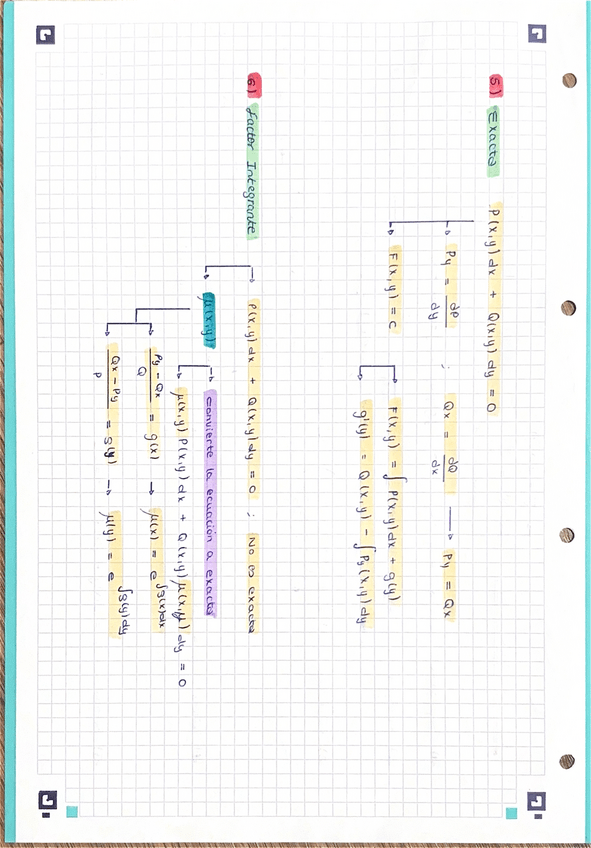 5) Exacta
P(x,y)dx + Q(x,y)dy = 0
Py = dP/dy ; Qx = dQ/dx → Py = Qx
F(x,y) = c
F(x,y) = ∫P(x,y)dx + g(y)
g'(y) = Q(x,y) - ∫Py(x,y)dy
6) Factor Integrante
P(x,y)dx + Q(x,y)dy = 0 ; No es exacta
μ(x,y)
convierte la ecuación a exacta
μ(x,y)P(x,y)dx + Q(x,y)μ(x,y)dy = 0
Py - Qx / Q = g(x) → μ(x) = e^∫g(x)dx
Qx - Py / P = g(y) → μ(y) = e^∫g(y)dy